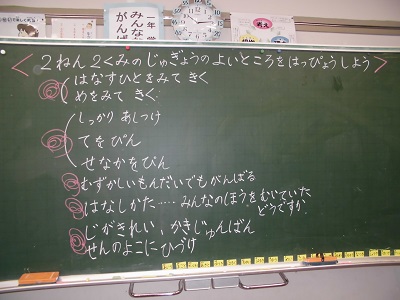 一年学
みんな
がんば
<2ねん2くみのじゅぎょうのよいところをはっぴょうしよう>
はなすひとをみて きく
めをみて きく。
しっかり あしつけ
てをぴん
せなかをぴん
むずかしいもんだいでもがんばる
はなしかた…. みんなのほうをむいていた
どうですか。
じがきれい、かきじゅんばん
せんのよこにひづけ